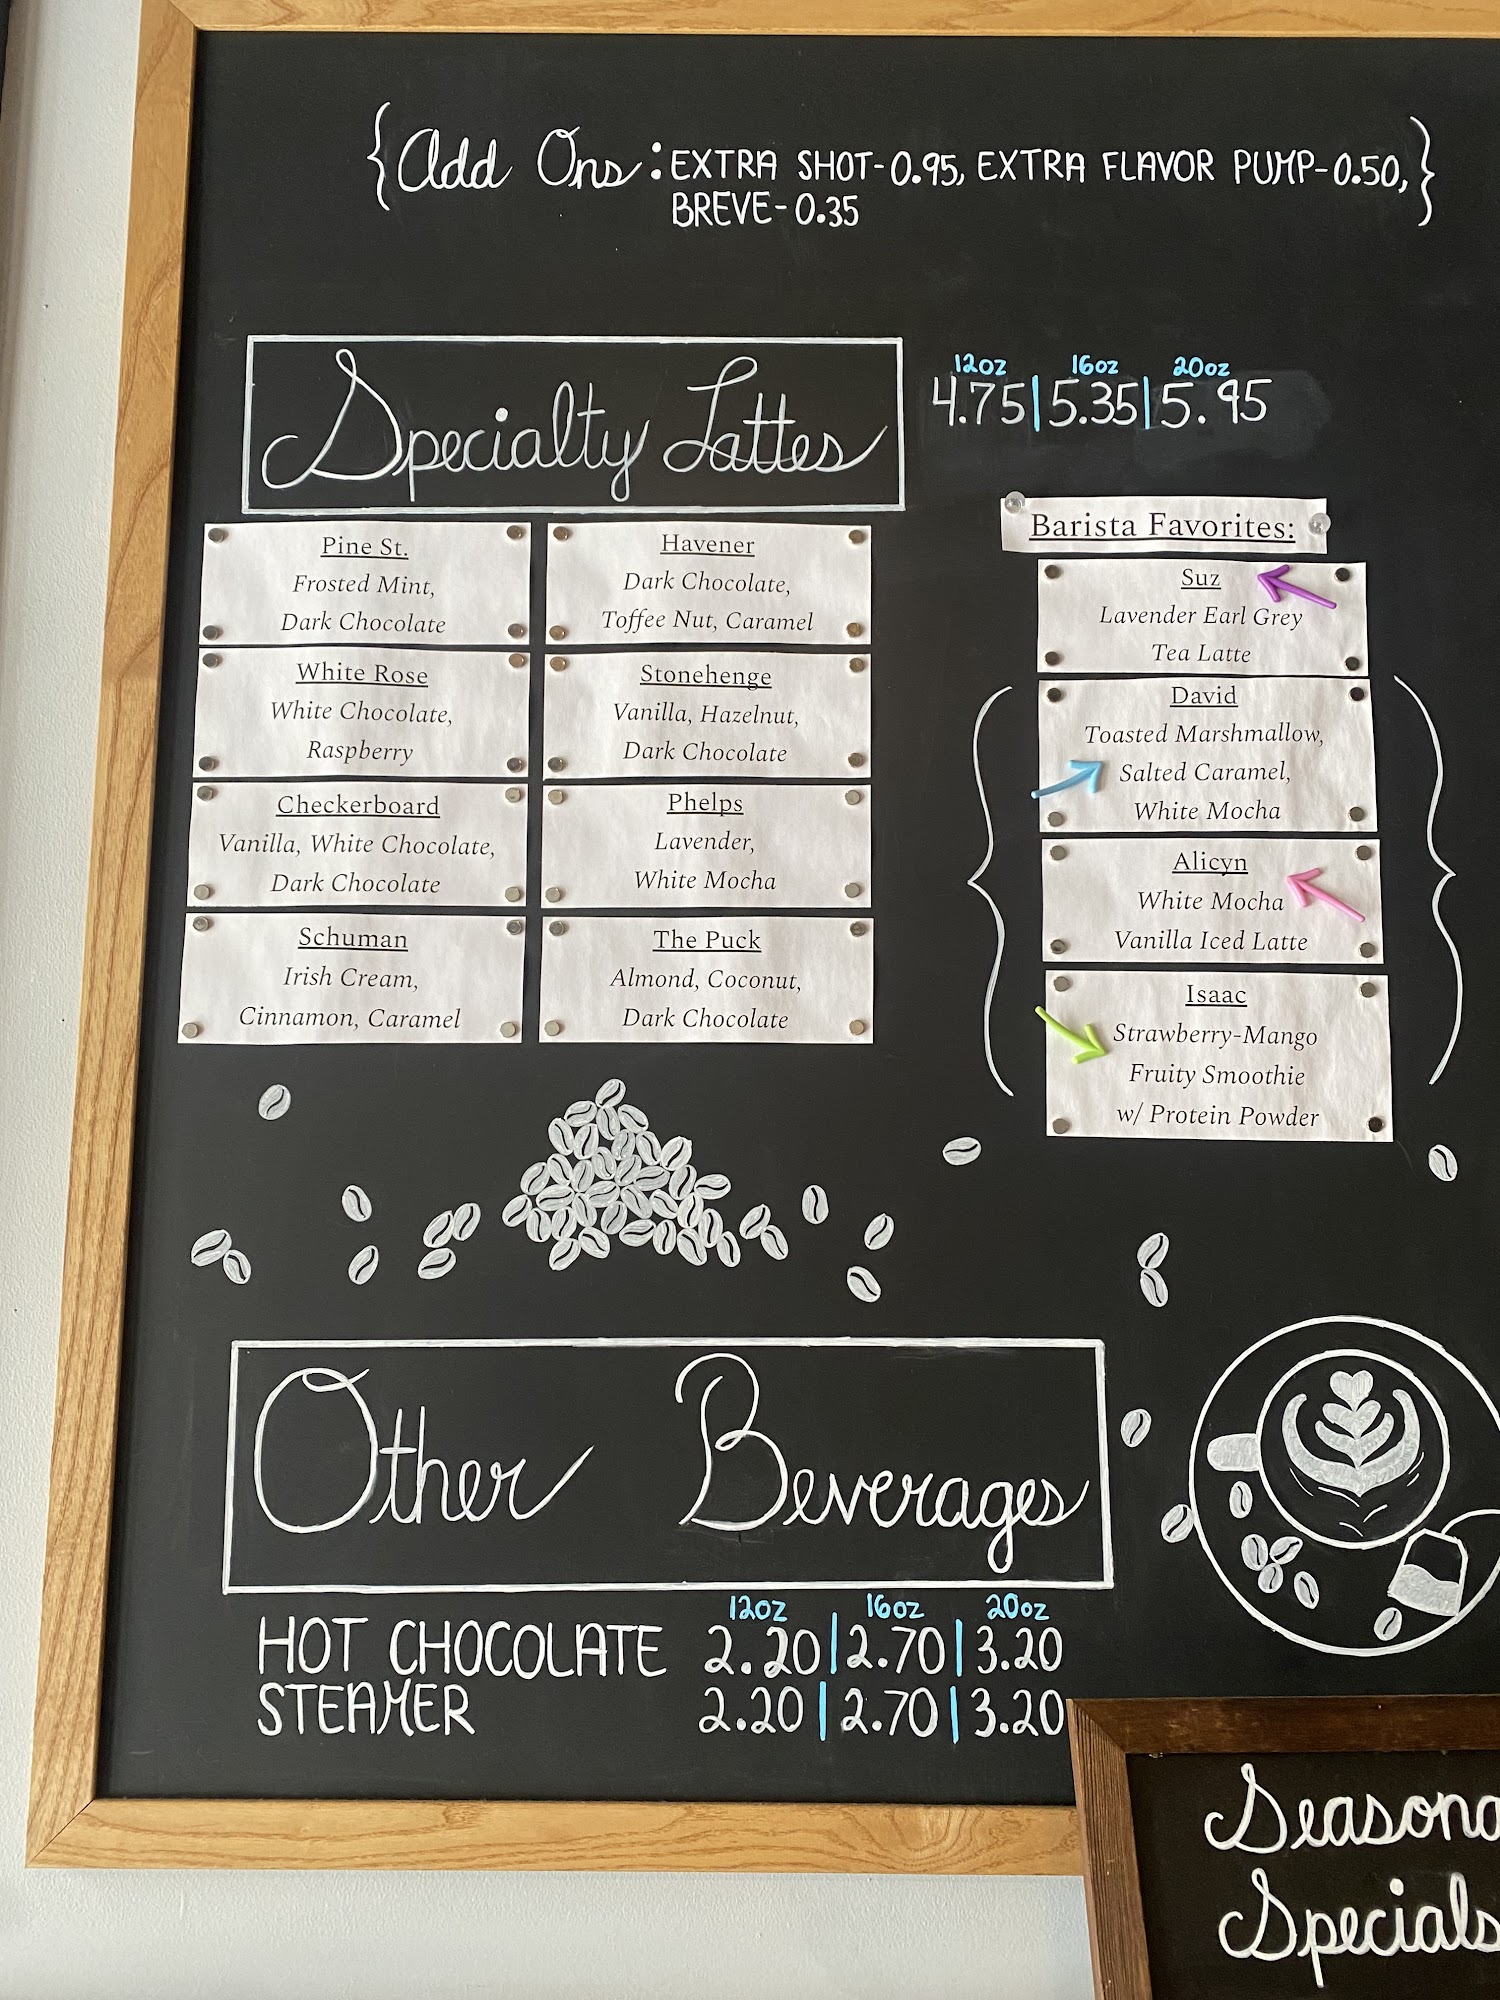 {Add Ons: EXTRA SHOT-0.95, EXTRA FLAVOR PUMP-0.50,}
BREVE-0.35
Specialty Lattes
12oz 16oz 20oz
4.75|5.35|5.95
Pine St.
Frosted Mint,
Dark Chocolate
White Rose
White Chocolate,
Raspberry
Checkerboard
Vanilla, White Chocolate,
Dark Chocolate
Schuman
Irish Cream,
Cinnamon, Caramel
Havener
Dark Chocolate,
Toffee Nut, Caramel
Stonehenge
Vanilla, Hazelnut,
Dark Chocolate
Phelps
Lavender,
White Mocha
The Puck
Almond, Coconut,
Dark Chocolate
Barista Favorites:
Suz
Lavender Earl Grey
Tea Latte
David
Toasted Marshmallow,
Salted Caramel,
White Mocha
Alicyn
White Mocha
Vanilla Iced Latte
Isaac
Strawberry-Mango
Fruity Smoothie
w/ Protein Powder
Other Beverages
12oz 16oz 20oz
HOT CHOCOLATE 2.20|2.70|3.20
STEAMER 2.20|2.70|3.20
Seasona
Specials